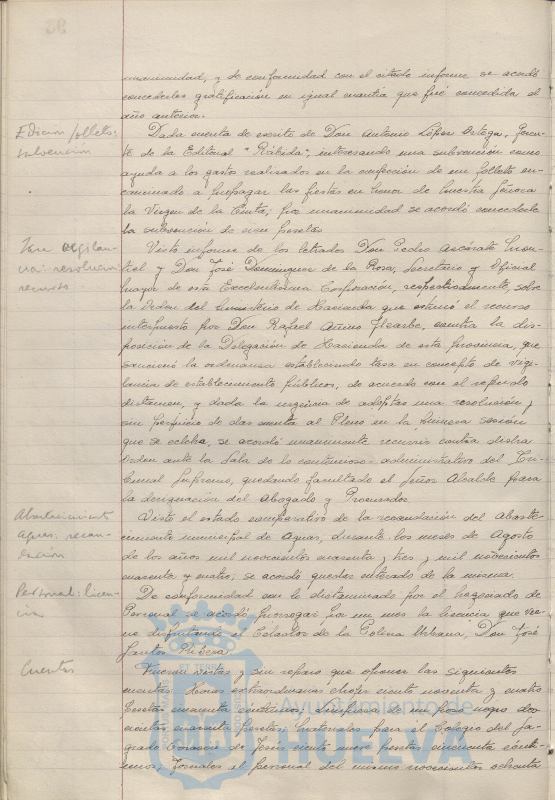 unanimidad, y de conformidad con el citado informe se acordó
concederles gratificación en igual cuantía que fué concedida el
año anterior.
Edición folleto:
subvención
Dada cuenta de escrito de Don Antonio López Ortega, Geren-
te de la Editorial "Rábida", interesando una subvención como
ayuda a los gastos realizados en la confección de un folleto en-
caminado a propagar las fiestas en honor de Nuestra Señora
la Virgen de la Cinta; por unanimidad se acordó concederle
la subvención de pesetas
Tasa vigilan-
cia: resolución
recurso
Visto informe de los letrados Don Pedro Azcárate
y Don José Dominguez de la Rosa, Secretario y Oficial
mayor de esta Excelentísima Corporación, respectivamente, sobre
la Orden del Ministerio de Hacienda que estimó el recurso
interpuesto por Don Rafael contra la dis-
posición de la Delegación de Hacienda de esta provincia, que
sancionó la ordenanza estableciendo tasa en concepto de vigi-
lancia de establecimientos públicos, de acuerdo con el referido
dictamen, y dada la urgencia de adoptar una resolución,
sin perjuicio de dar cuenta al Pleno en la primera sesión
que se celebre, se acordó unanimemente recurrir contra dicha
Orden ante la Sala de lo contencioso-administrativo del Tri-
bunal Supremo, quedando facultado el Señor Alcalde para
la designación del Abogado y Procurador.
Abastecimiento
aguas; recau-
dación
Visto el estado comparativo de la recaudación del Abaste-
cimiento municipal de Aguas, durante los meses de Agosto
de los años mil novecientos cuarenta y tres y mil novecientos
cuarenta y cuatro, se acordó quedar enterado de la misma.
Personal: licen-
cia
De conformidad con lo dictaminado por el Negociado de
Personal se acordó prorrogar por un mes la licencia que vie-
ne disfrutando el Celador de la Policía Urbana, Don José
Santos Ribera.
Cuentas
Fueron vistas y sin reparo que oponer las siguientes
cuentas: Horas extraordinarias chofer ciento noventa y cuatro
pesetas cuarenta céntimos; pozo negro dos-
cientas cuarenta pesetas; para el Colegio del Sa-
grado Corazón de Jesús ciento nueve pesetas cincuenta cénti-
mos; Jornales al personal del mismo novecientos ochenta
Ayuntamiento de
HUELVA